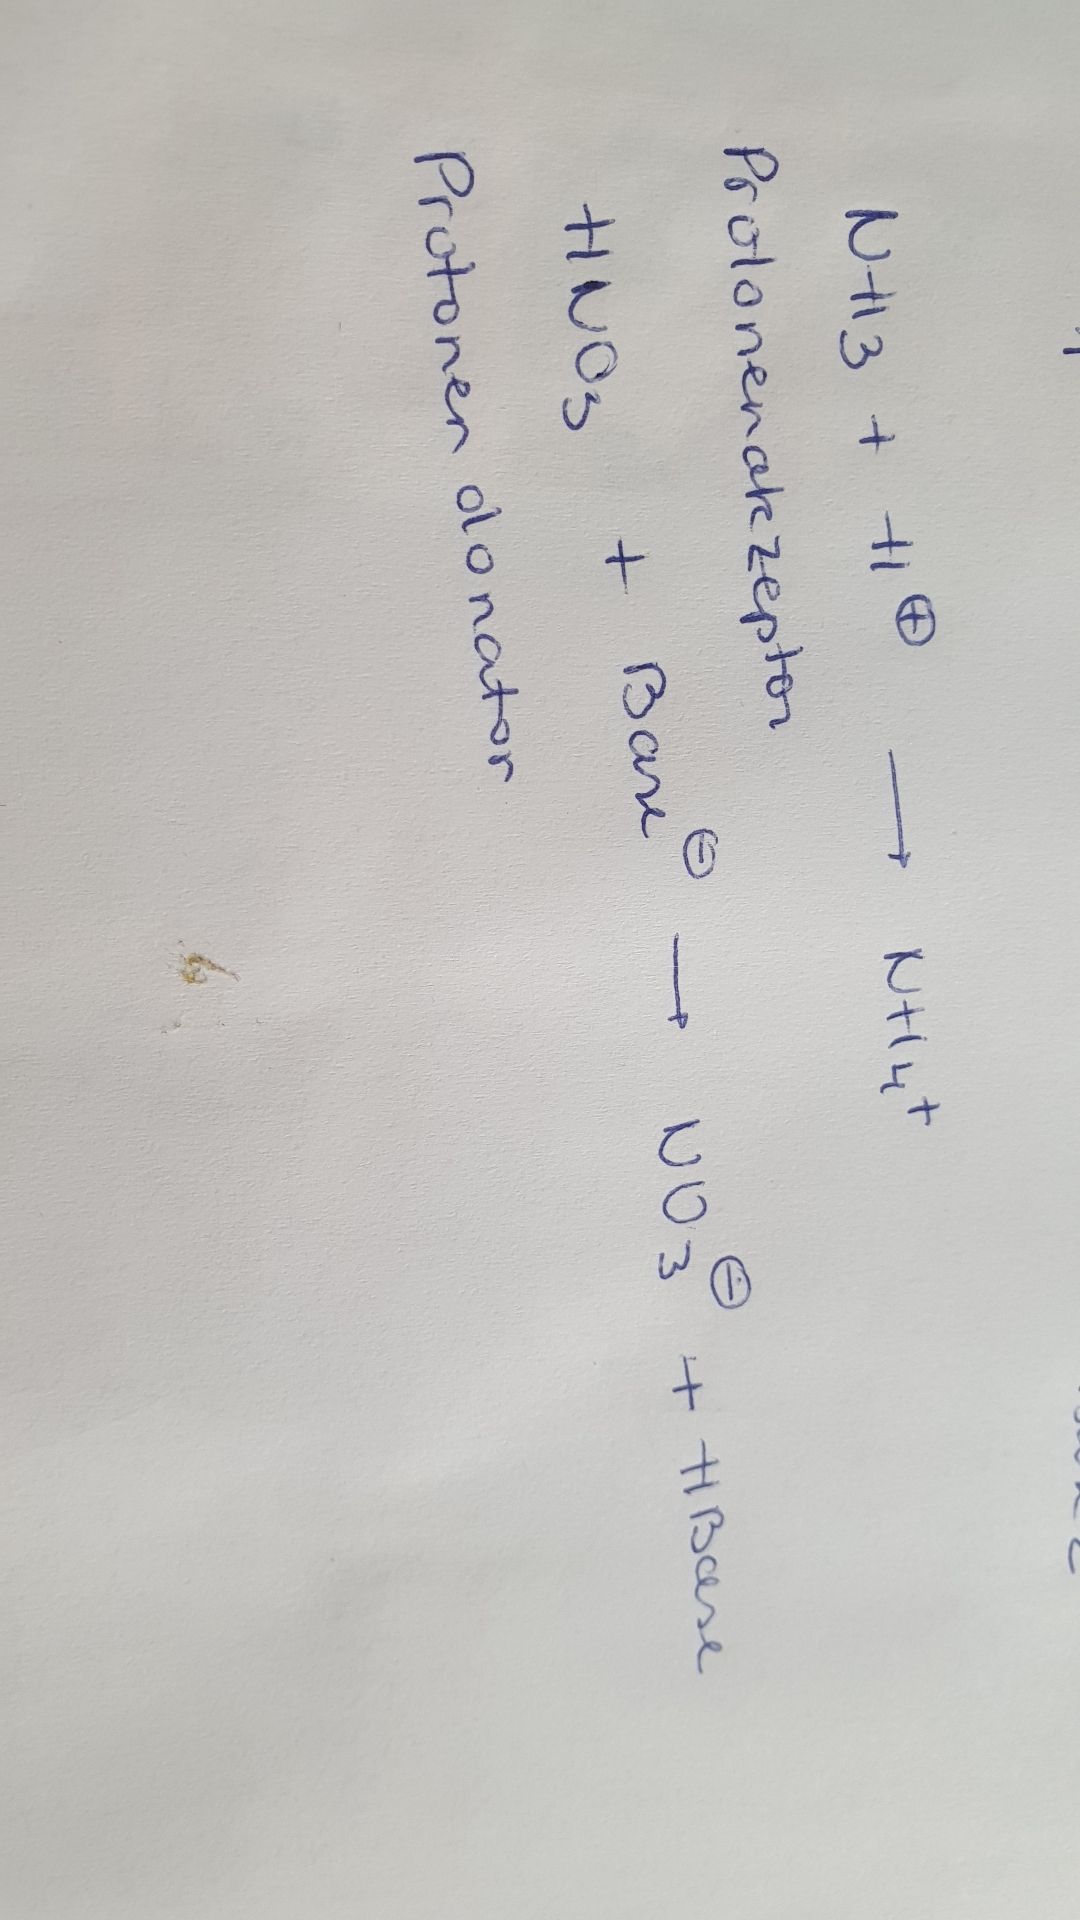 NH3 + H⊕ → NH4+
Protonenakzeptor
HNO3 + Base⊖ → NO3⊖ + HBase
Protonen donator